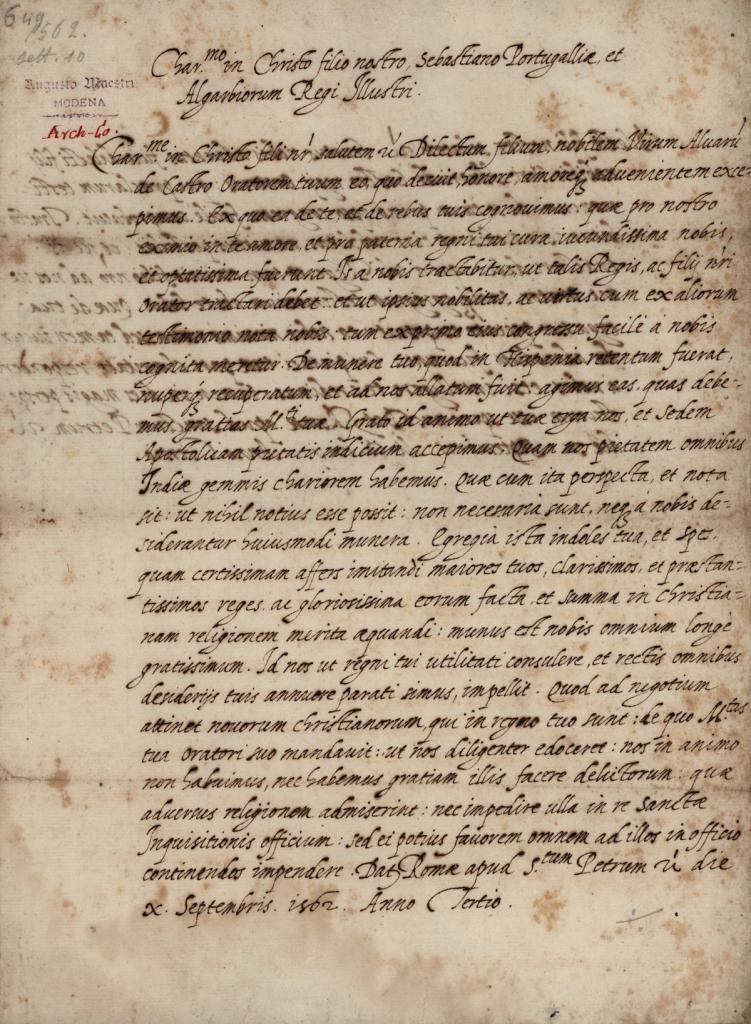 1562.
sett. 10
Augusto Maestri
MODENA
Arch-Co.
Char.mo in Christo filio nostro, Sebastiano Portugalliæ, et
Algarbiorum Regi Illustri.
Charme in Christo fili nr̃ salutem Dilectum filium, nobilem Virum Aluarũ
de Castro Oratorem tuum eo, quo decuit, honore, amoreq; aduenientem exce-
pimus. Ex quo ea de te, et de rebus tuis cognouimus: quæ pro nostro
eximio in te amore, et pro paterna regni tui cura, iucundissima nobis,
et optatissima fuerunt. Is a nobis tractabitur, ut talis Regis, ac filij nr̃i
Orator tractari debet: et ut ipsius nobilitas, ac uirtus cum ex aliorum
testimonio nota nobis, tum ex primo eius congressu facilè à nobis
cognita meretur. De munere tuo, quod in Hispania retentum fuerat,
nuperq; recuperatum, et ad nos allatum fuit: agimus eas, quas debe-
mus, gratias M.ti tuæ. Grato id animo ut tuæ erga nos, et Sedem
Apostolicam pietatis indicium accepimus. Quam nos pietatem omnibus
Indiæ gemmis chariorem habemus. Quæ cum ita perspecta, et nota
sit: ut nihil notius esse possit: non necessaria sunt, neq; à nobis de-
siderantur huiusmodi munera. Egregia ista indoles tua, et spes,
quam certissimam affers imitandi maiores tuos, clarissimos, et præstan-
tissimos reges, ac gloriosissima eorum facta, et summa in Christia-
nam religionem merita æquandi: munus est nobis omnium longè
gratissimum. Id nos ut regni tui utilitati consulere, et rectis omnibus
desiderijs tuis annuere parati simus, impellit. Quod ad negotium
attinet nouorum christianorum, qui in regno tuo sunt: de quo M.tas
tua Oratori suo mandauit: ut nos diligenter edoceret: nos in animo
non habuimus, nec habemus gratiam illis facere delictorum: quæ
aduersus religionem admiserint: nec impedire ulla in re Sanctæ
Inquisitionis officium: sed ei potius fauorem omnem ad illos in officio
continendos impendere. Dat; Romæ apud S.tum Petrum die
x. Septembris. 1562. Anno Tertio.